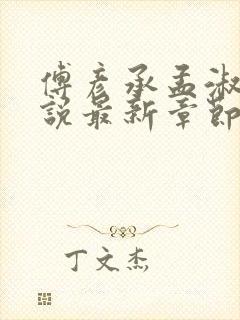 傅彦承孟淑
说最新章节
丁文杰